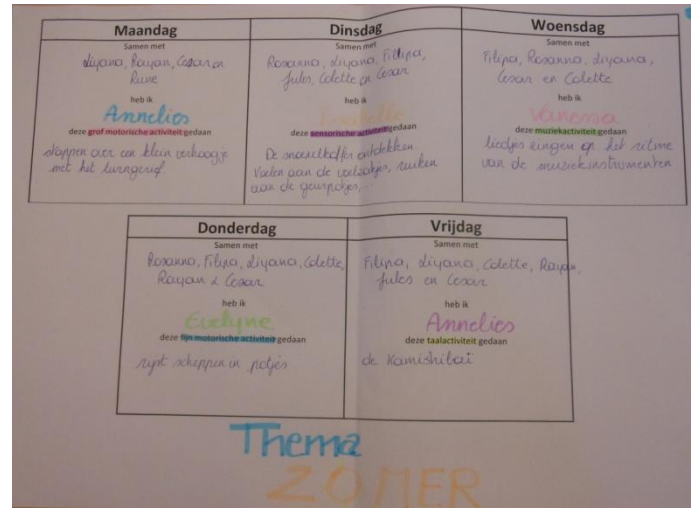 Maandag
Samen met
Liyana, Rayan, Cesar en
Rune
heb ik
Annelies
deze grof motorische activiteit gedaan
stappen over een klein verhoogje
met het turngerief.
Dinsdag
Samen met
Rosanna, Liyana, Filipa,
Jules, Colette en Cesar
heb ik
deze sensorische activiteit gedaan
De snoezelkoffer ontdekken
Voelen aan de voelzakjes, ruiken
aan de geurpotjes,...
Woensdag
Samen met
Filipa, Rosanna, Liyana,
Cesar en Colette
heb ik
Vanessa
deze muziekactiviteit gedaan
liedjes zingen op het ritme
van de muziekinstrumenten
Donderdag
Samen met
Rosanna, Filipa, Liyana, Colette,
Rayan & Cesar
heb ik
Evelyne
deze fijn motorische activiteit gedaan
rijst scheppen in potjes
Vrijdag
Samen met
Filipa, Liyana, Colette, Rayan,
Jules en Cesar
heb ik
Annelies
deze taalactiviteit gedaan
de Kamishibaï
Thema
ZOMER